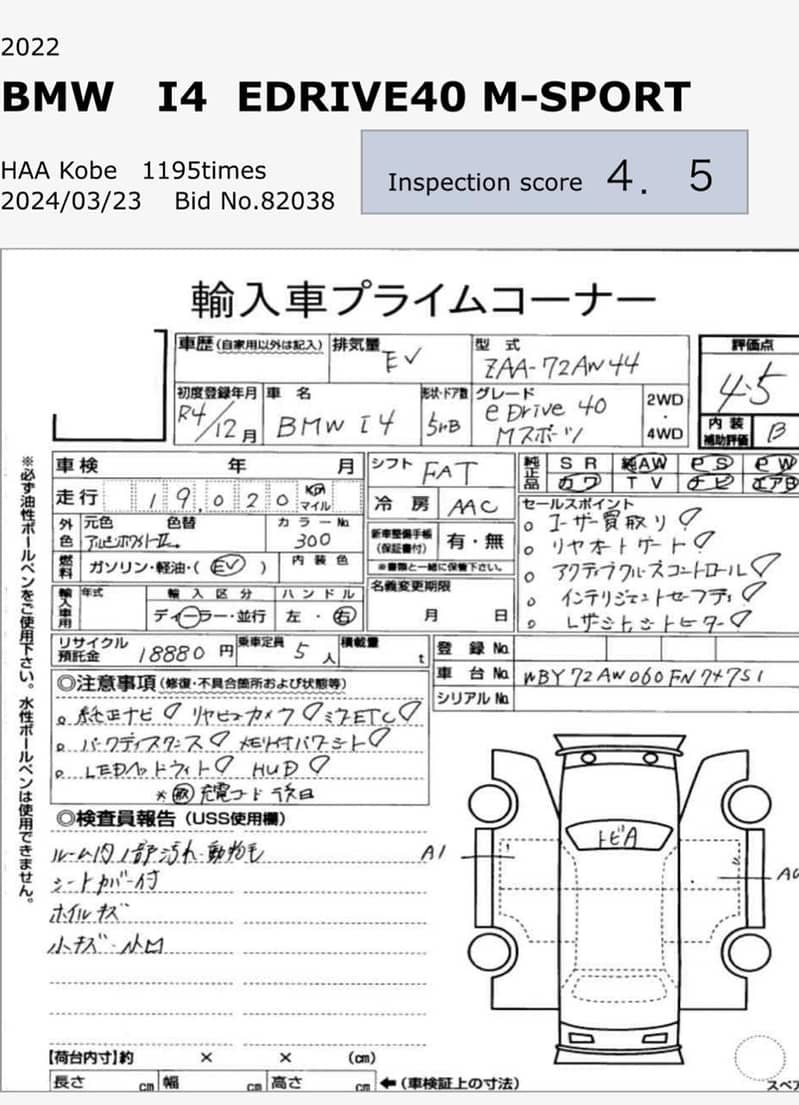 2022
BMW I4 EDRIVE40 M-SPORT
HAA Kobe 1195times
2024/03/23 Bid No.82038
Inspection score 4. 5
輸入車プライムコーナー
車歴(自家用以外は記入) 排気量 EV 型式 ZAA-72AW44 評価点 4.5
初度登録年月 R4/12月 車名 BMW I4 形状・ドア数 5HB グレード eDrive 40 Mスポーツ 2WD・4WD 内装補助評価 B
※必ず油性ボールペンをご使用下さい。水性ボールペンは使用できません。
車検 年 月 シフト FAT 純正品 SR 純AW PS PW
走行 19,020 km マイル 冷房 AAC カワ TV ナビ エアB
外色 元色 アルピンホワイトIII 色替 カラーNo. 300 新車整備手帳(保証書付) 有・無
※書類と一緒に保管下さい。
燃料 ガソリン・軽油・(EV) 内装色
セールスポイント
ユーザー買取り
リヤオートゲート
アクティブクルーズコントロール
インテリジェントセーフティ
レザーシートシートヒーター
輸入車用 年式 輸入区分 ディーラー・並行 ハンドル 左・右 名義変更期限 月 日
リサイクル預託金 18880円 乗車定員 5人 積載量 t 登録No.
車台No. WBY72AW060FN74751
シリアルNo.
◎注意事項(修復・不具合箇所および状態等)
純正ナビ リヤビューカメラ ミラーETC
パークディスタンス メモリ付パワーシート
LEDヘッドライト HUD
※ 充電コード後日
◎検査員報告(USS使用欄)
ルーム内1部汚れ・動物毛
シートカバー付
ホイルキズ
小キズ・小凹
A1
トビA
【荷台内寸】約 × × (cm)
長さ cm 幅 cm 高さ cm ←(車検証上の寸法)
スペア